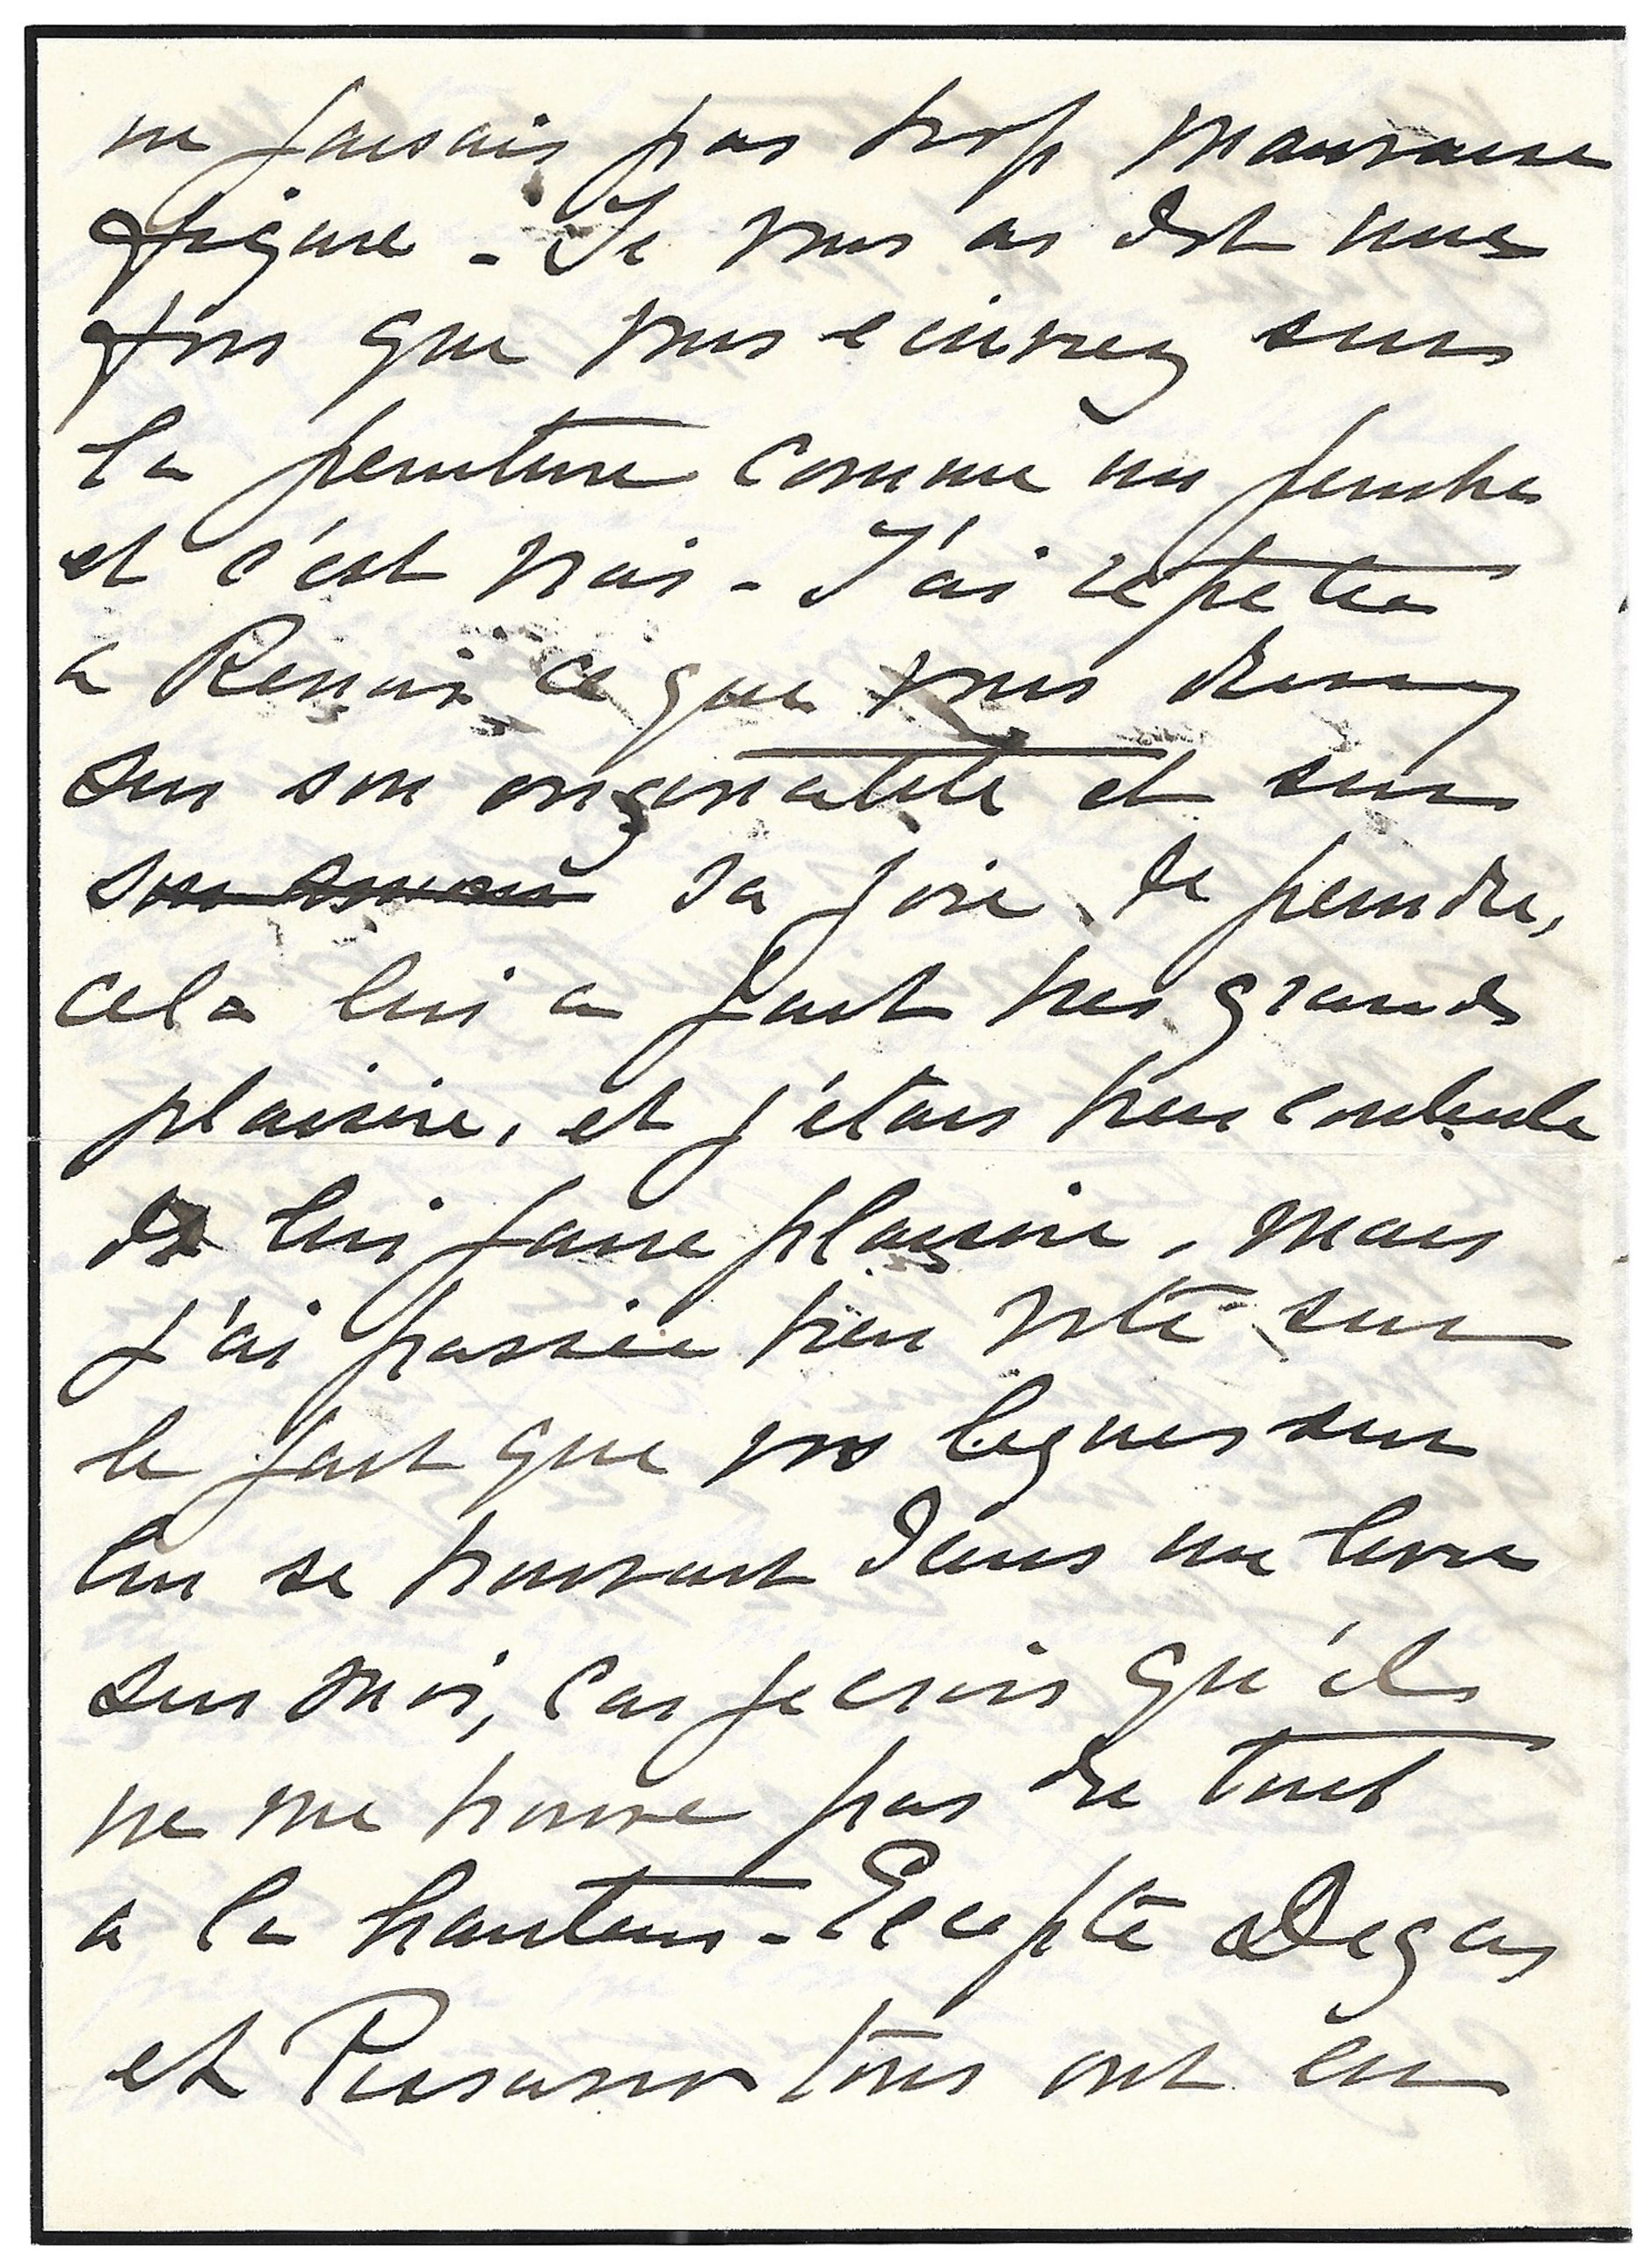 ne faisais pas trop mauvaise
figure - Je vous ai dit une
fois que vous ecivrez sur
la peinture comme un peintre
et c'est vrai - J'ai repetée
a Renoir ce que vous disiez
sur son originalité et sur
sa joie de peindre,
cela lui a fait tres grand
plaisire, et j'étais tres contente
de lui faire plaisire, mais
j'ai passée bien vite sur
le fait que vos lignes sur
lui se trouvait dans un livre
sur moi, car je crois qu'ils
ne me trouve pas du tout
a la hauteur - Excepté Degas
et Pissarro tous ont eu